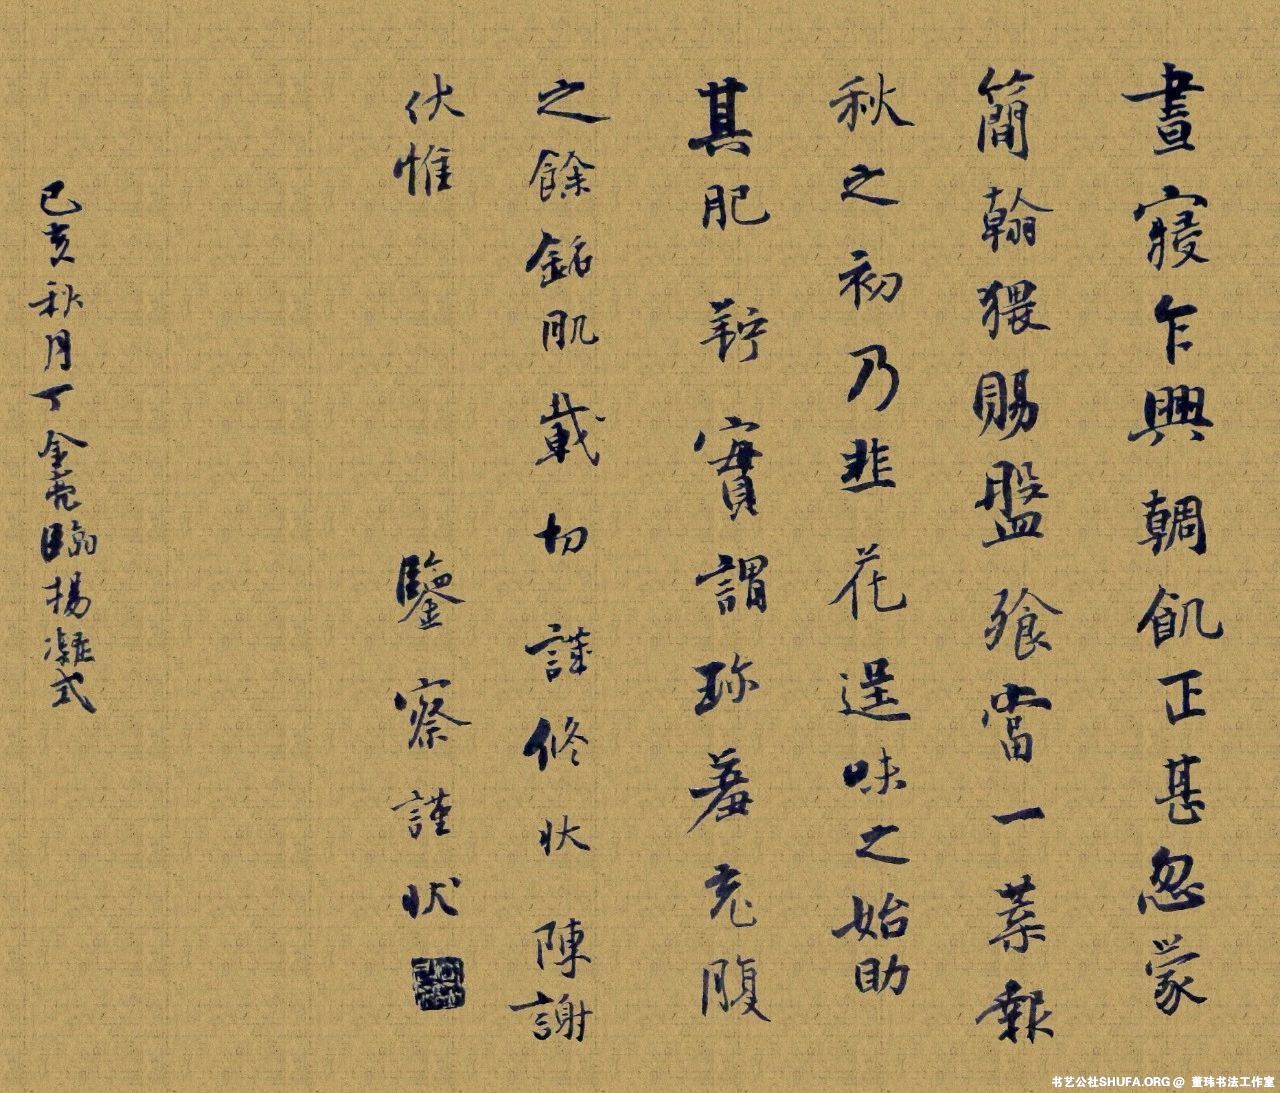 晝寢乍興輖飢正甚忽蒙
簡翰猥賜盤飧當一葉報
秋之初乃韭花逞味之始助
其肥羜實謂珍羞充腹
之餘銘肌載切謹修狀陳謝
伏惟
鑒察謹狀
己亥秋月丁金亮臨楊凝式
书艺公社SHUFA.ORG @ 董玮书法工作室